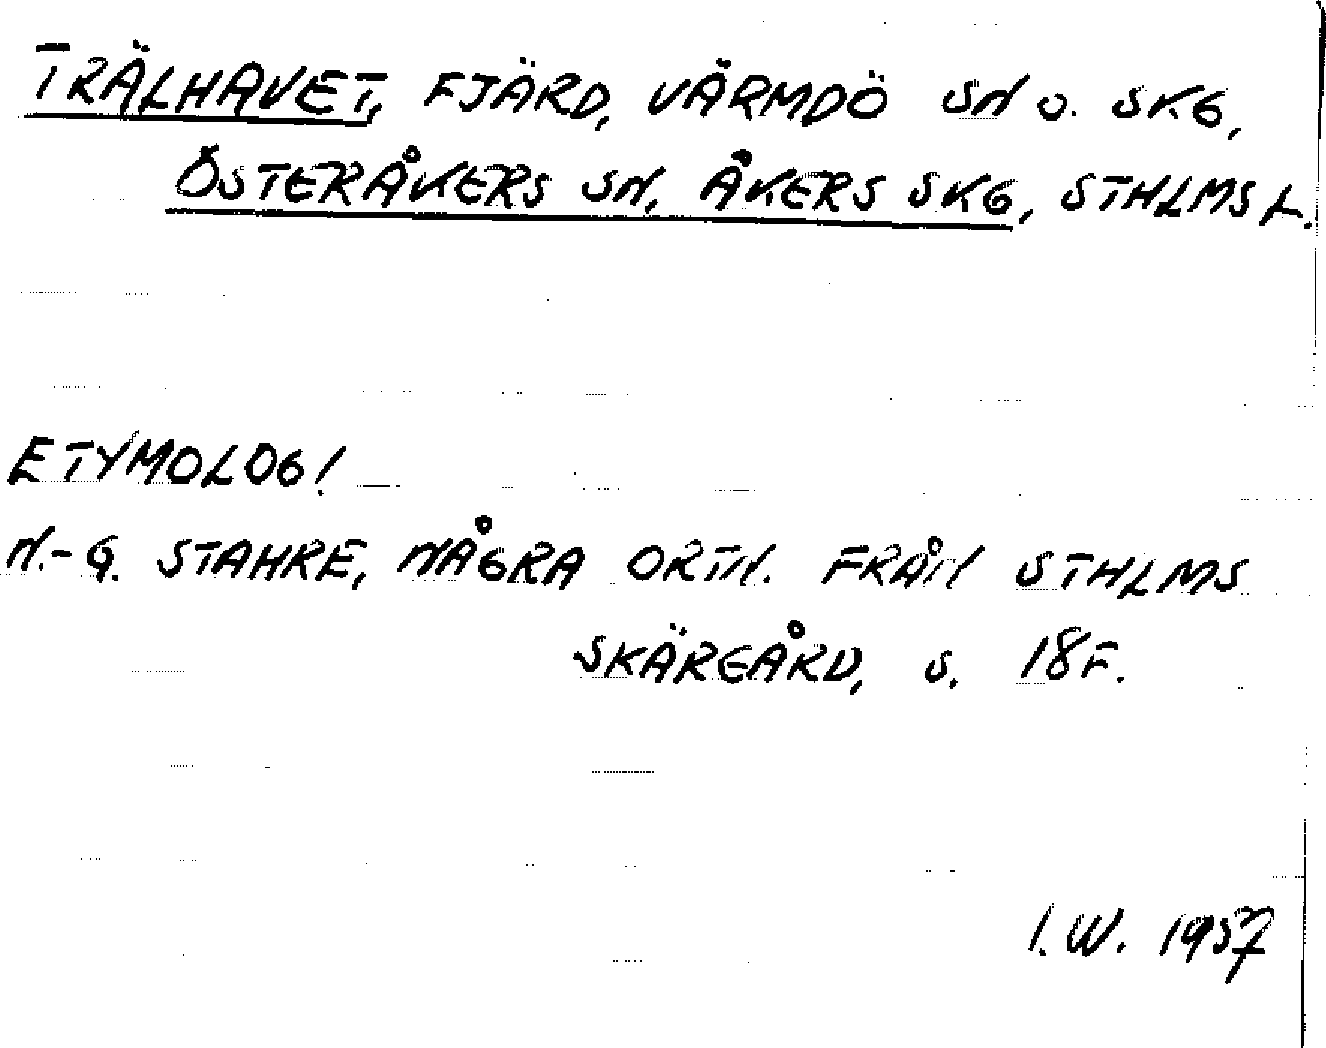 TRÄLHAVET, FJÄRD, VÄRMDÖ SN O. SKG,
ÖSTERÅKERS SN, ÅKERS SKG, STHLMS L.
ETYMOLOGI
N.-G. STAHRE, NÅGRA ORTN. FRÅN STHLMS
SKÄRGÅRD, S. 18F.
I.W. 1957